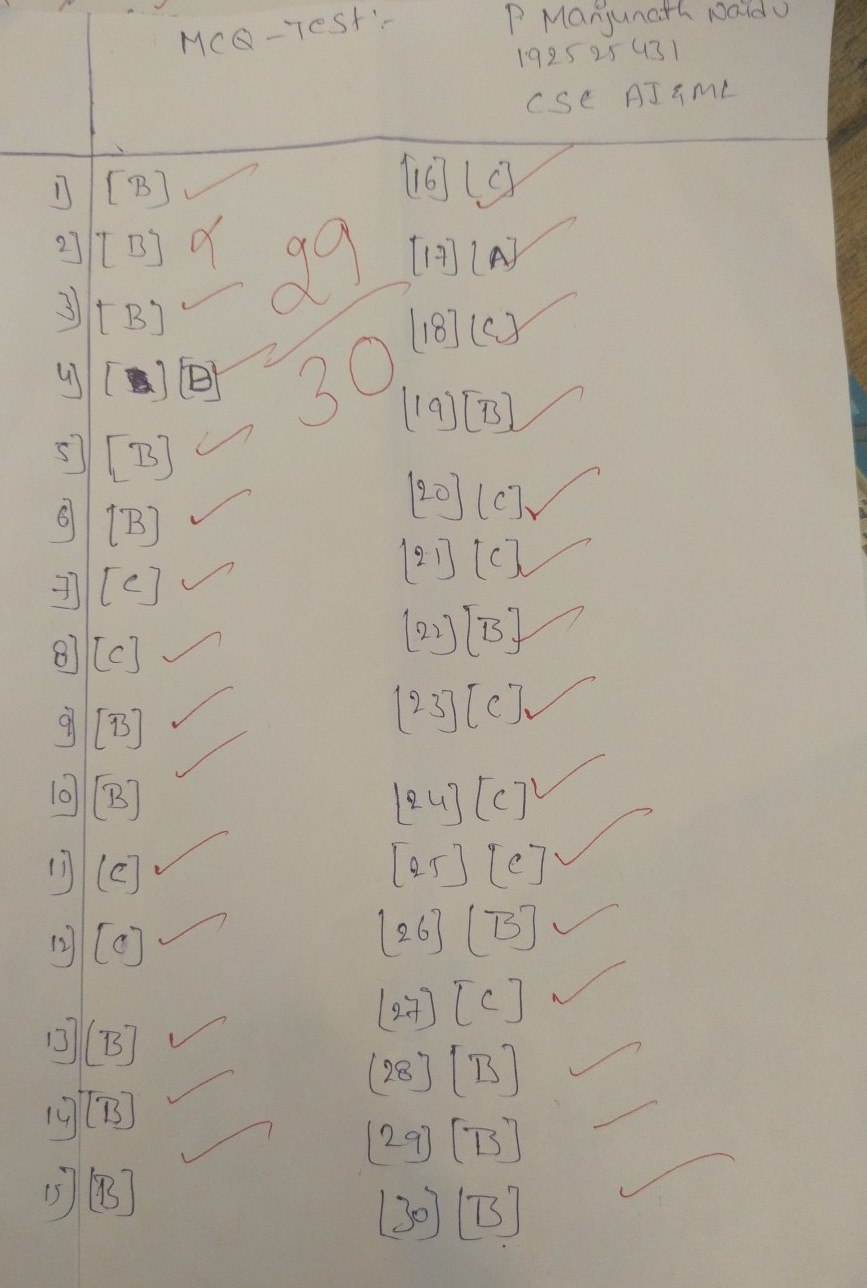 MCQ-Test:-
P Manjunath Naidu
192525431
CSE AI&ML
1] [B]
2] [B]
3] [B]
4] [D]
5] [B]
6] [B]
7] [C]
8] [C]
9] [B]
10] [B]
11] [C]
12] [C]
13] [B]
14] [B]
15] [B]
29
30
[16] [C]
[17] [A]
[18] [C]
[19] [B]
[20] [C]
[21] [C]
[22] [B]
[23] [C]
[24] [C]
[25] [C]
[26] [B]
[27] [C]
[28] [B]
[29] [B]
[30] [B]